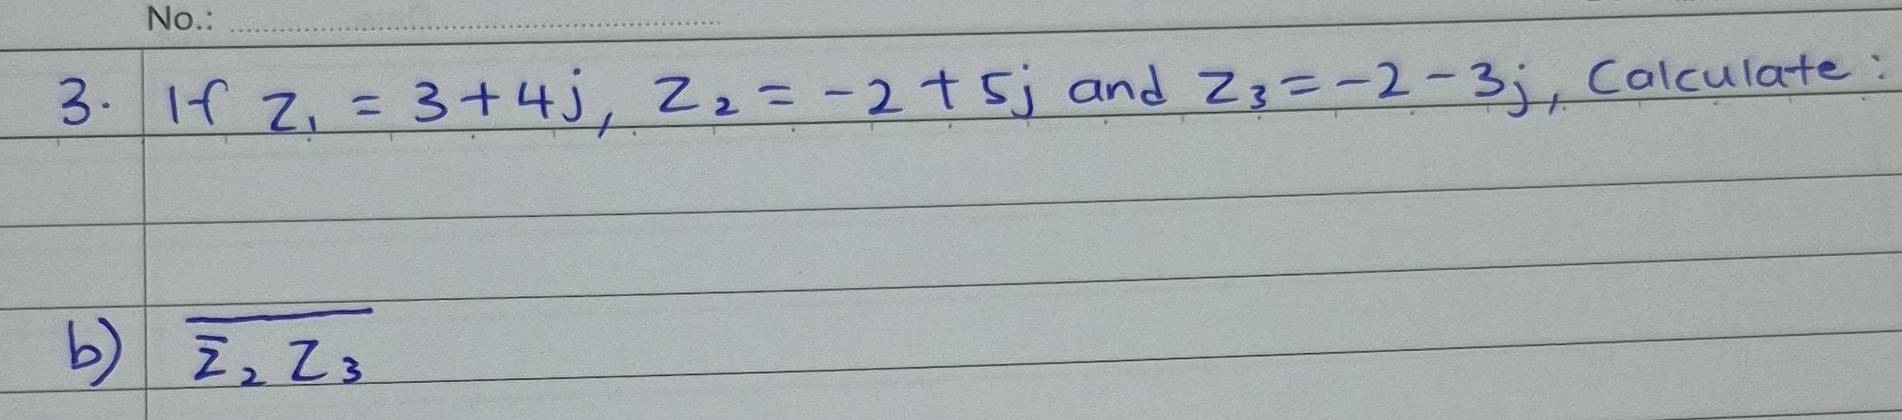 No.:
3. If z₁ = 3 + 4j, z₂ = -2 + 5j and z₃ = -2 - 3j, Calculate:
b) \overline{\bar{z}₂ z₃}